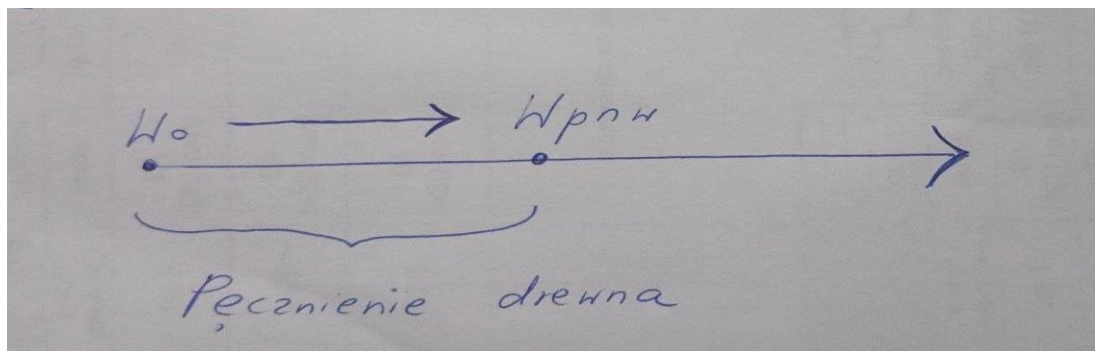 Wo Wpnw
Pęcznienie drewna